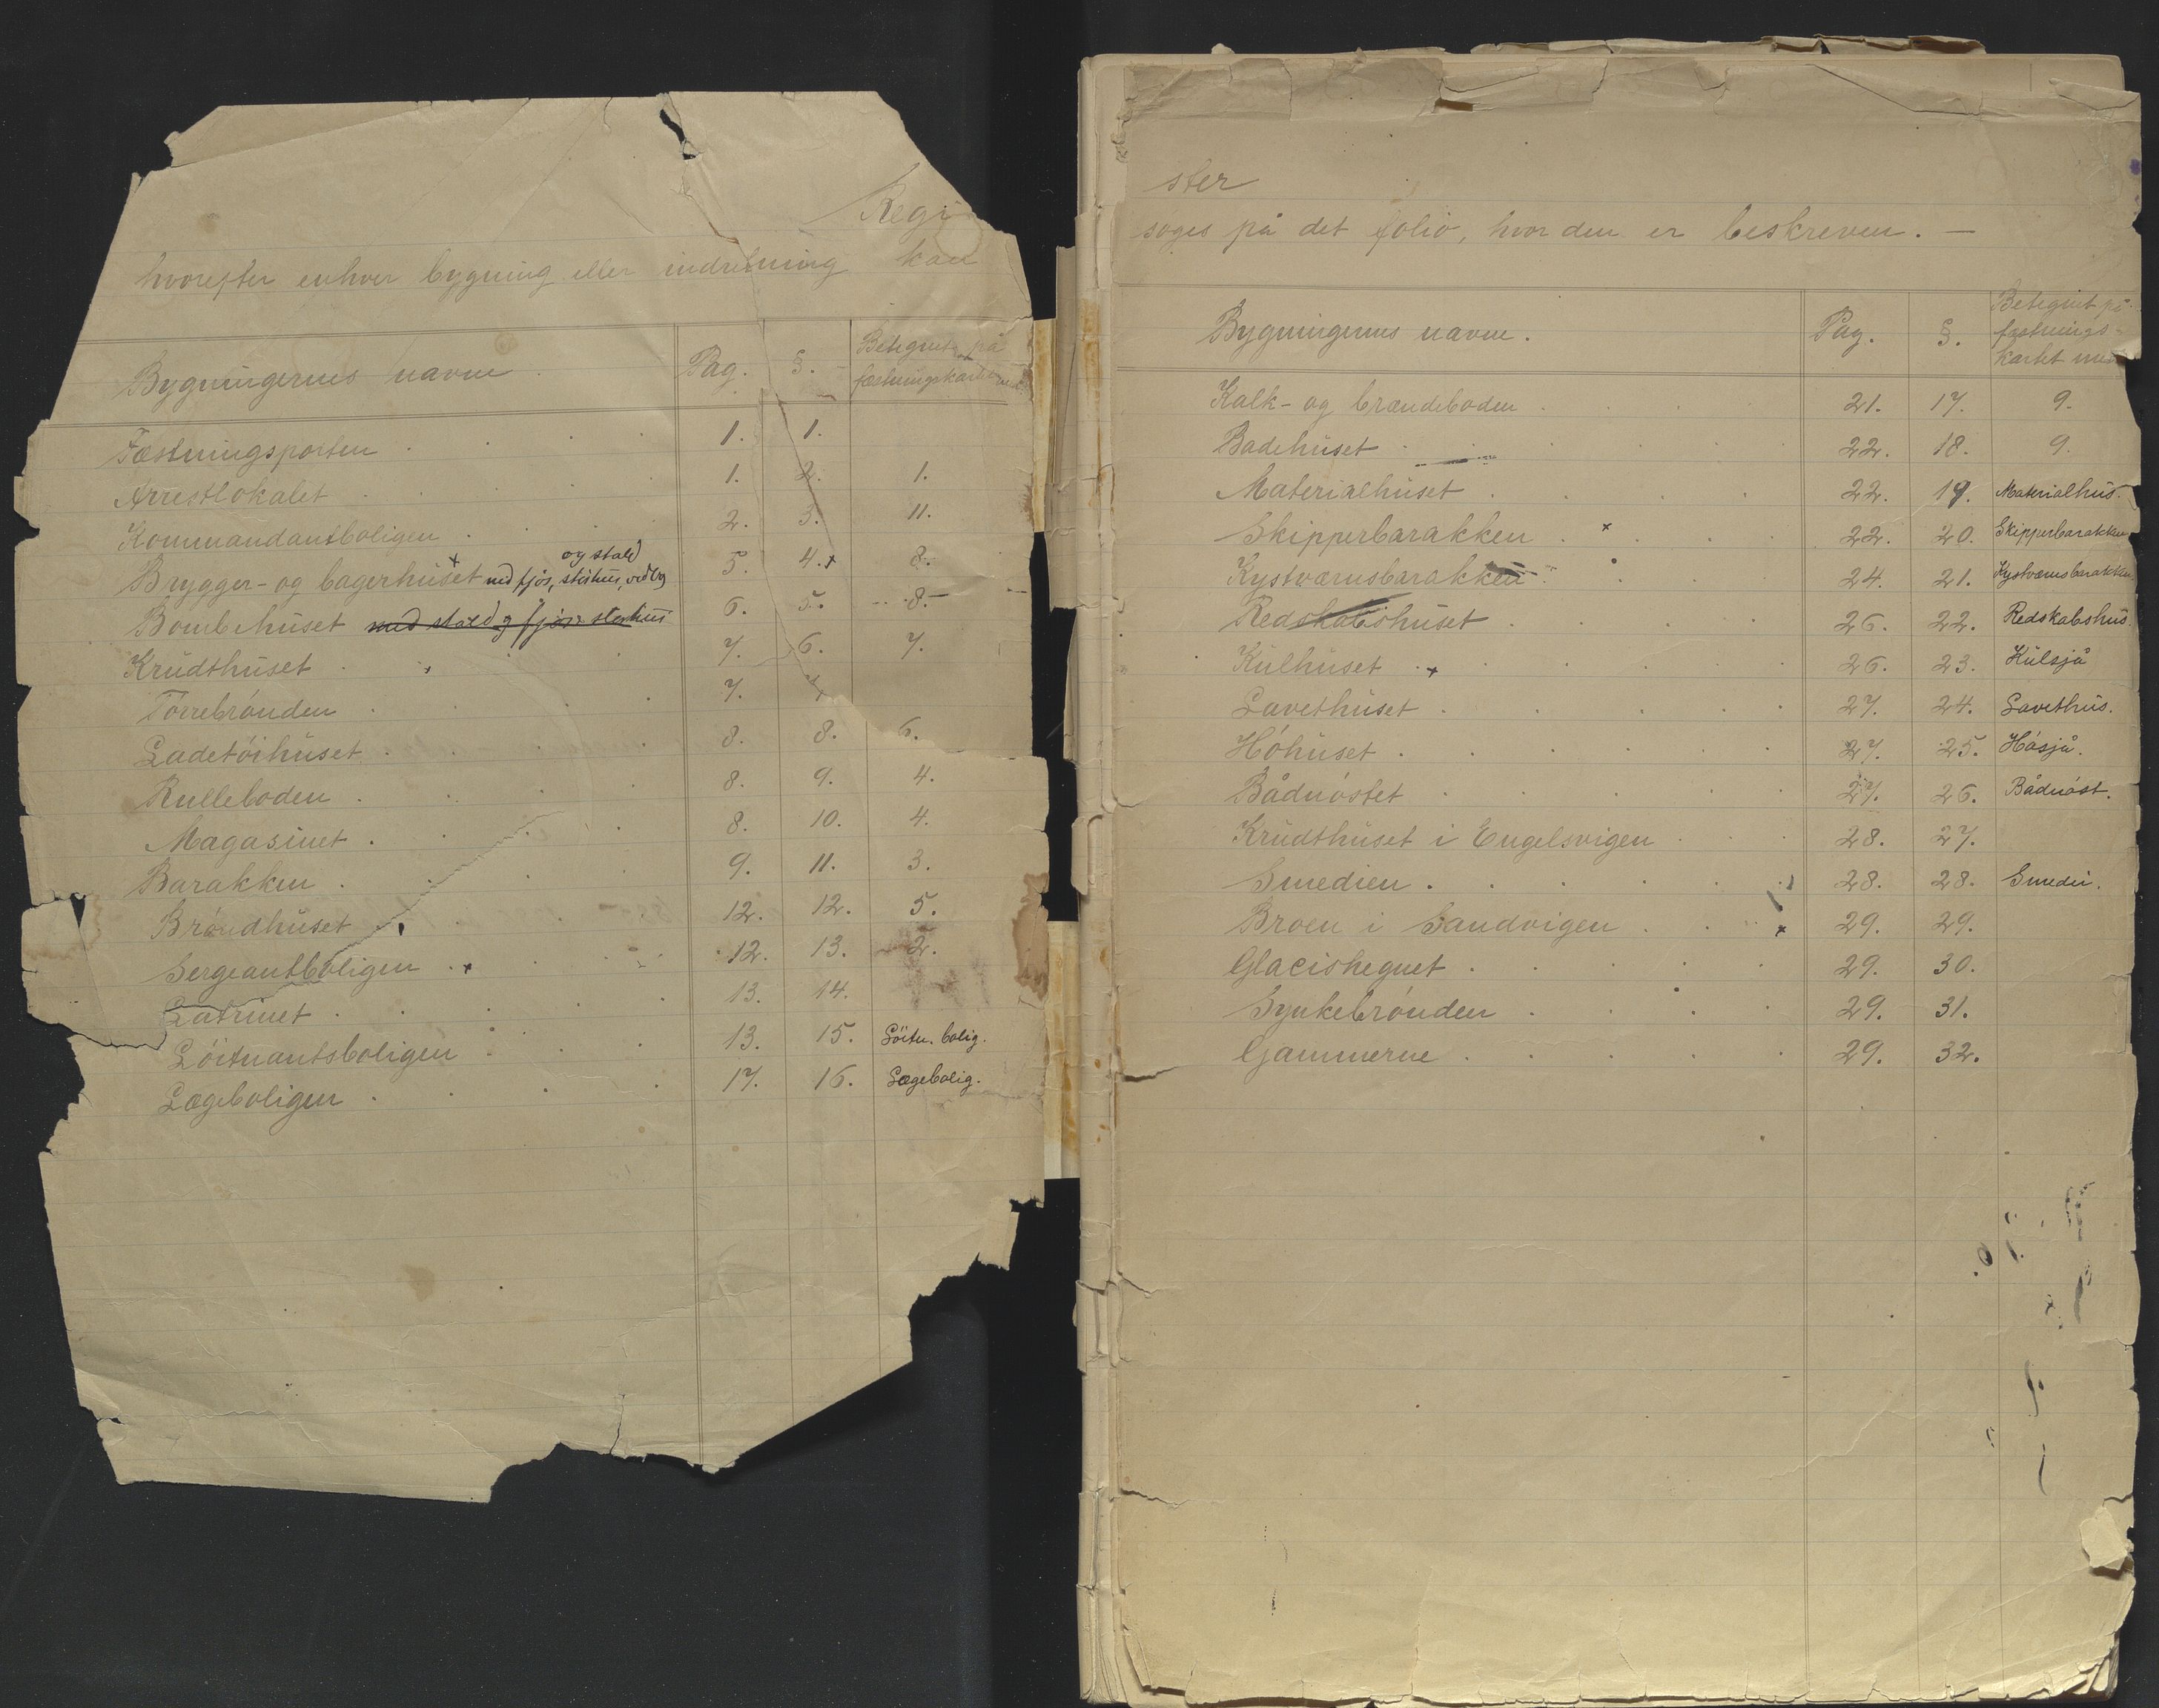 Regi
hvorefter enhver bygning eller indretning kan
Bygningernes navne. Pag. §. Betegnet på fæstningskartet med
Fæstningsporten 1. 1.
Arrestlokalet 1. 2. 1.
Kommandantboligen 2. 3. 11.
og stald
Brygger- og bagerhuset med fjøs, stishus, vedbg 5. 4. 8.
Bombehuset med stald og fjøs 6. 5. 8.
Krudthuset 7. 6. 7.
Törrebrönden 7. 7.
Ladetöihuset 8. 8. 6.
Rulleboden 8. 9. 4.
Magasinet 8. 10. 4.
Barakken 9. 11. 3.
Bröndhuset 12. 12. 5.
Sergeantboligen 12. 13. 2.
Latrinet 13. 14.
Löitnantsboligen 13. 15. Löitn. bolig.
Lægeboligen 17. 16. Lægebolig.
ster
søges på det folio, hvor den er beskreven. —
Bygningernes navne. Pag. §. Betegnet på fæstnings-
kartet med
Kalk- og brændeboden 21. 17. 9.
Badehuset 22. 18. 9.
Materialhuset 22. 19. Materialhus.
Skipperbarakken 22. 20. Skipperbarakken
Kystværnsbarakken 24. 21. Kystværnsbarakken
Redskabshuset 26. 22. Redskabshus.
Kulhuset 26. 23. Kulsjå
Lavethuset 27. 24. Lavethus.
Höhuset 27. 25. Hösjå.
Bådnöstet 27. 26. Bådnöst.
Krudthuset i Engelsvigen 28. 27.
Smedien 28. 28. Smedie.
Broen i Sandvigen 29. 29.
Glacishegnet 29. 30.
Synkebrönden 29. 31.
Gjammerne 29. 32.